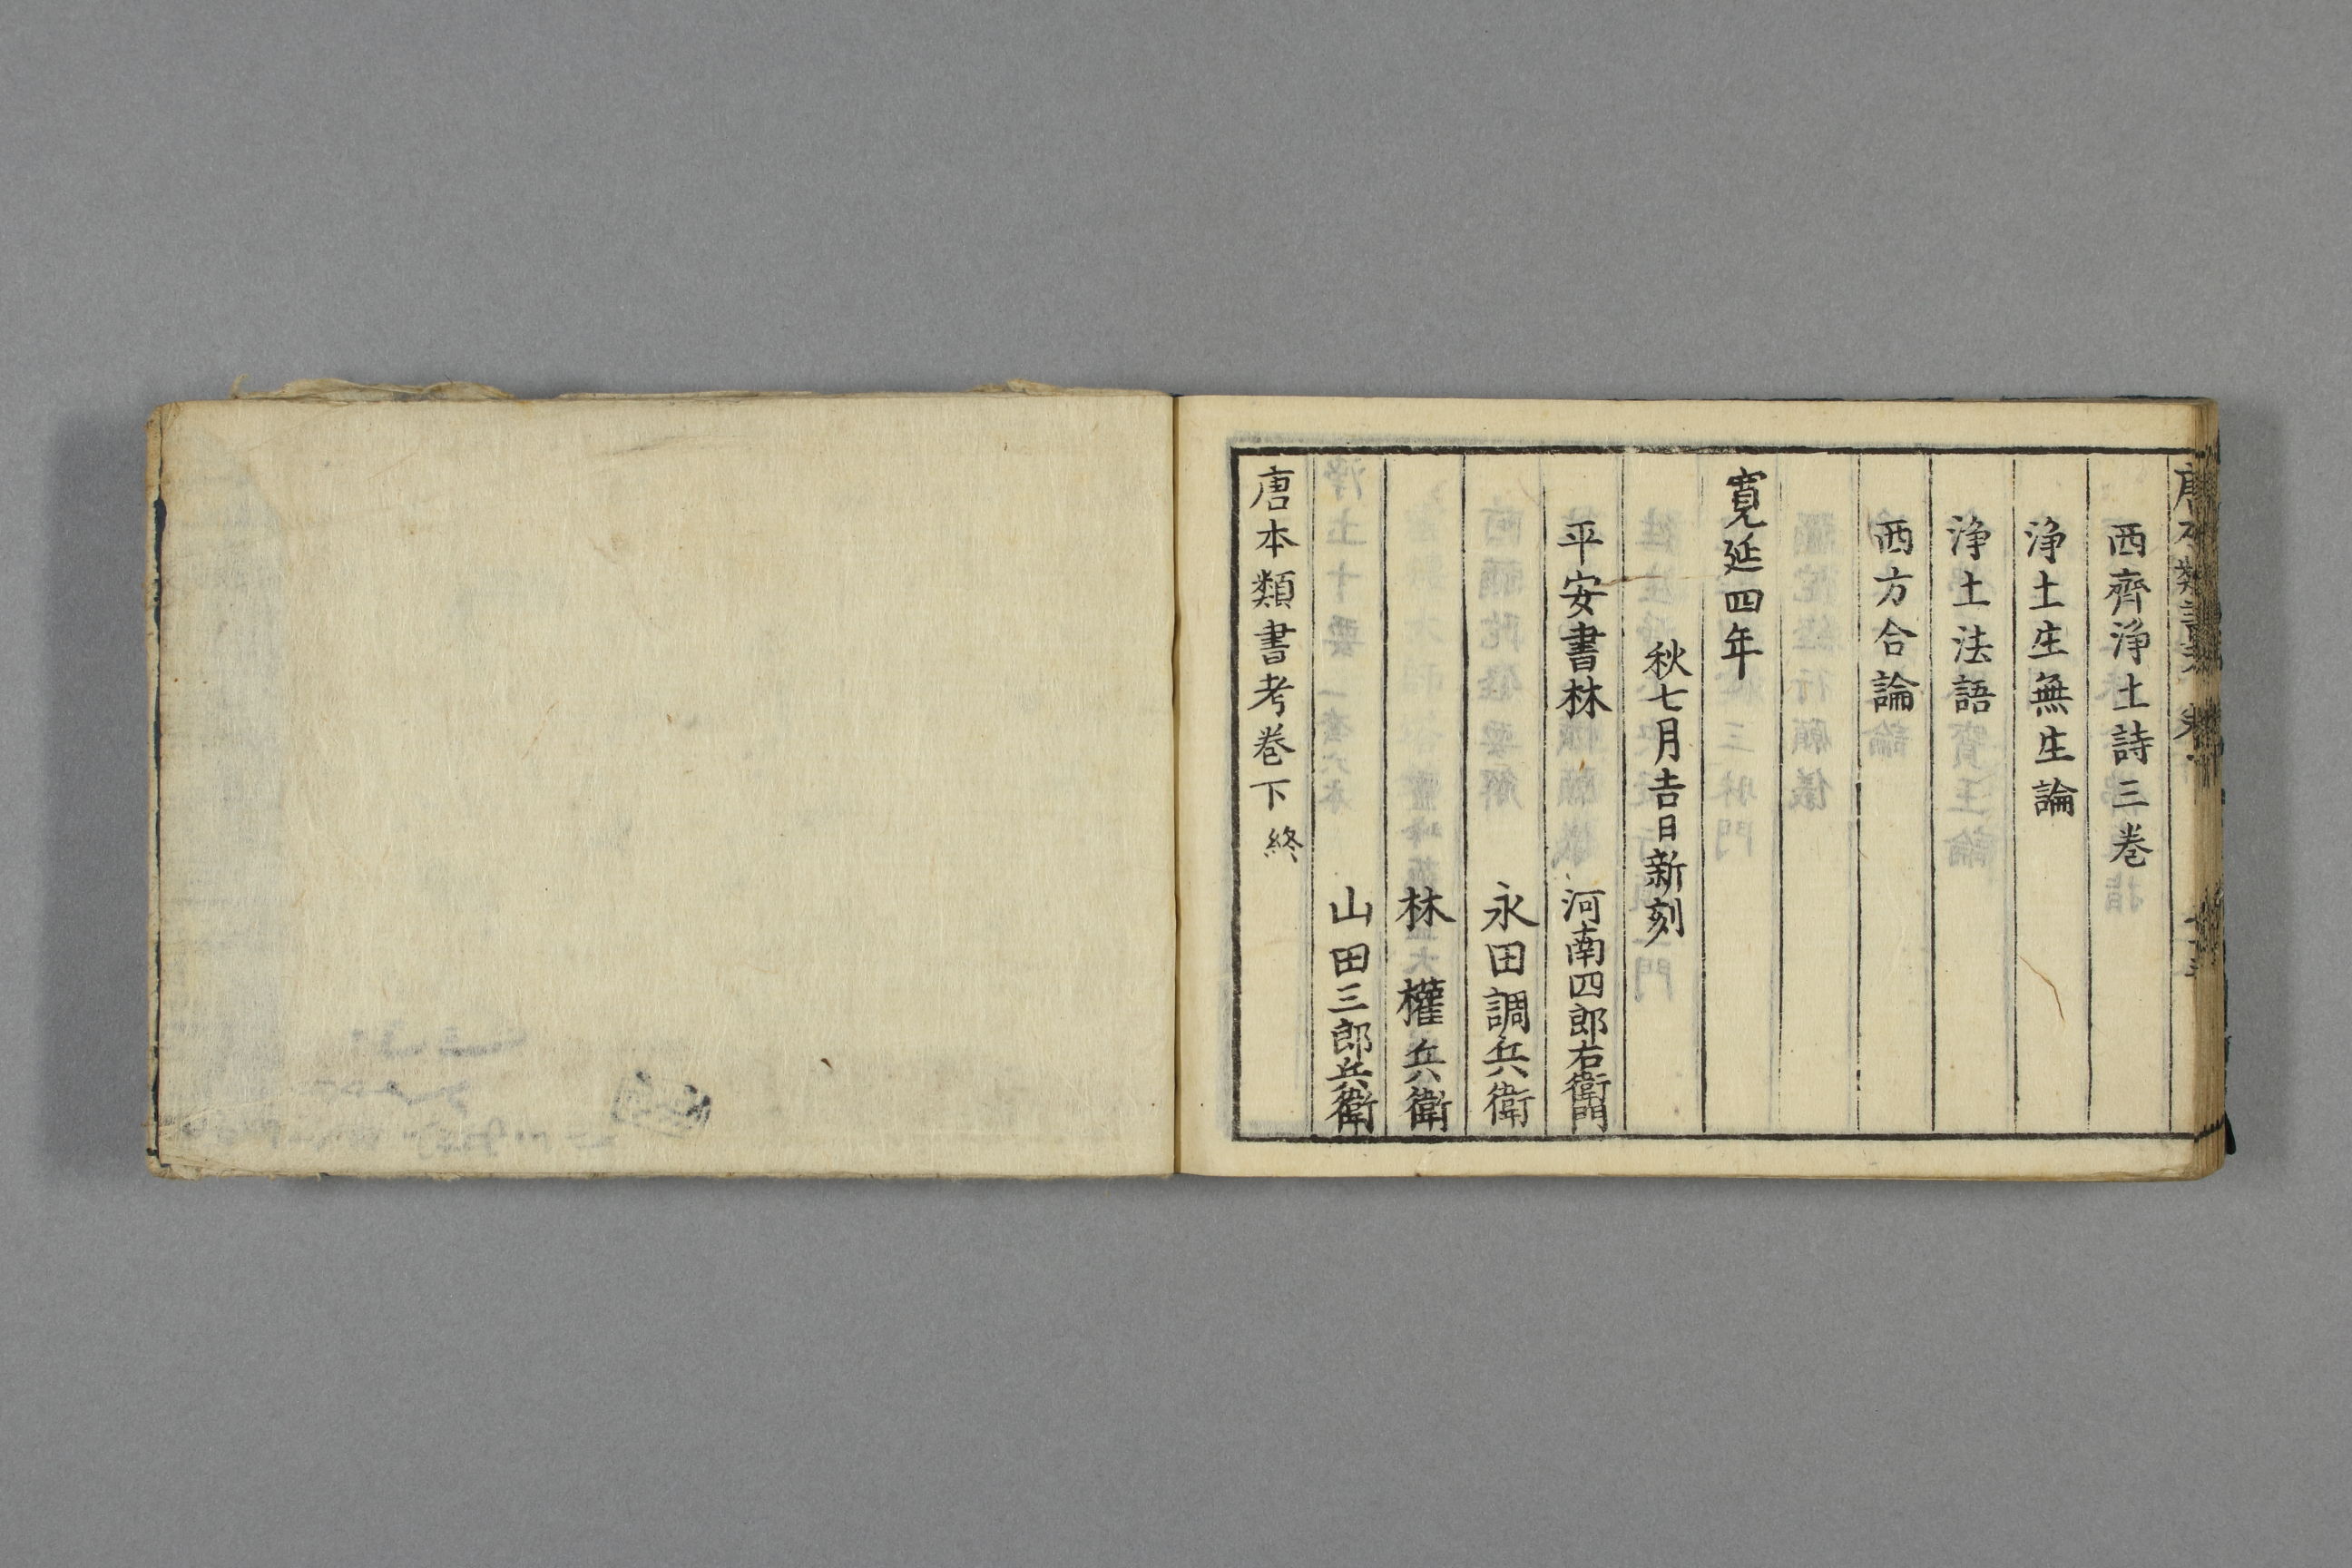 西齊淨土詩三卷
淨土生無生論
淨土法語
西方合論
寛延四年
秋七月吉日新刻
平安書林 河南四郎右衛門
永田調兵衛
林 權兵衛
山田三郎兵衛
唐本類書考卷下終